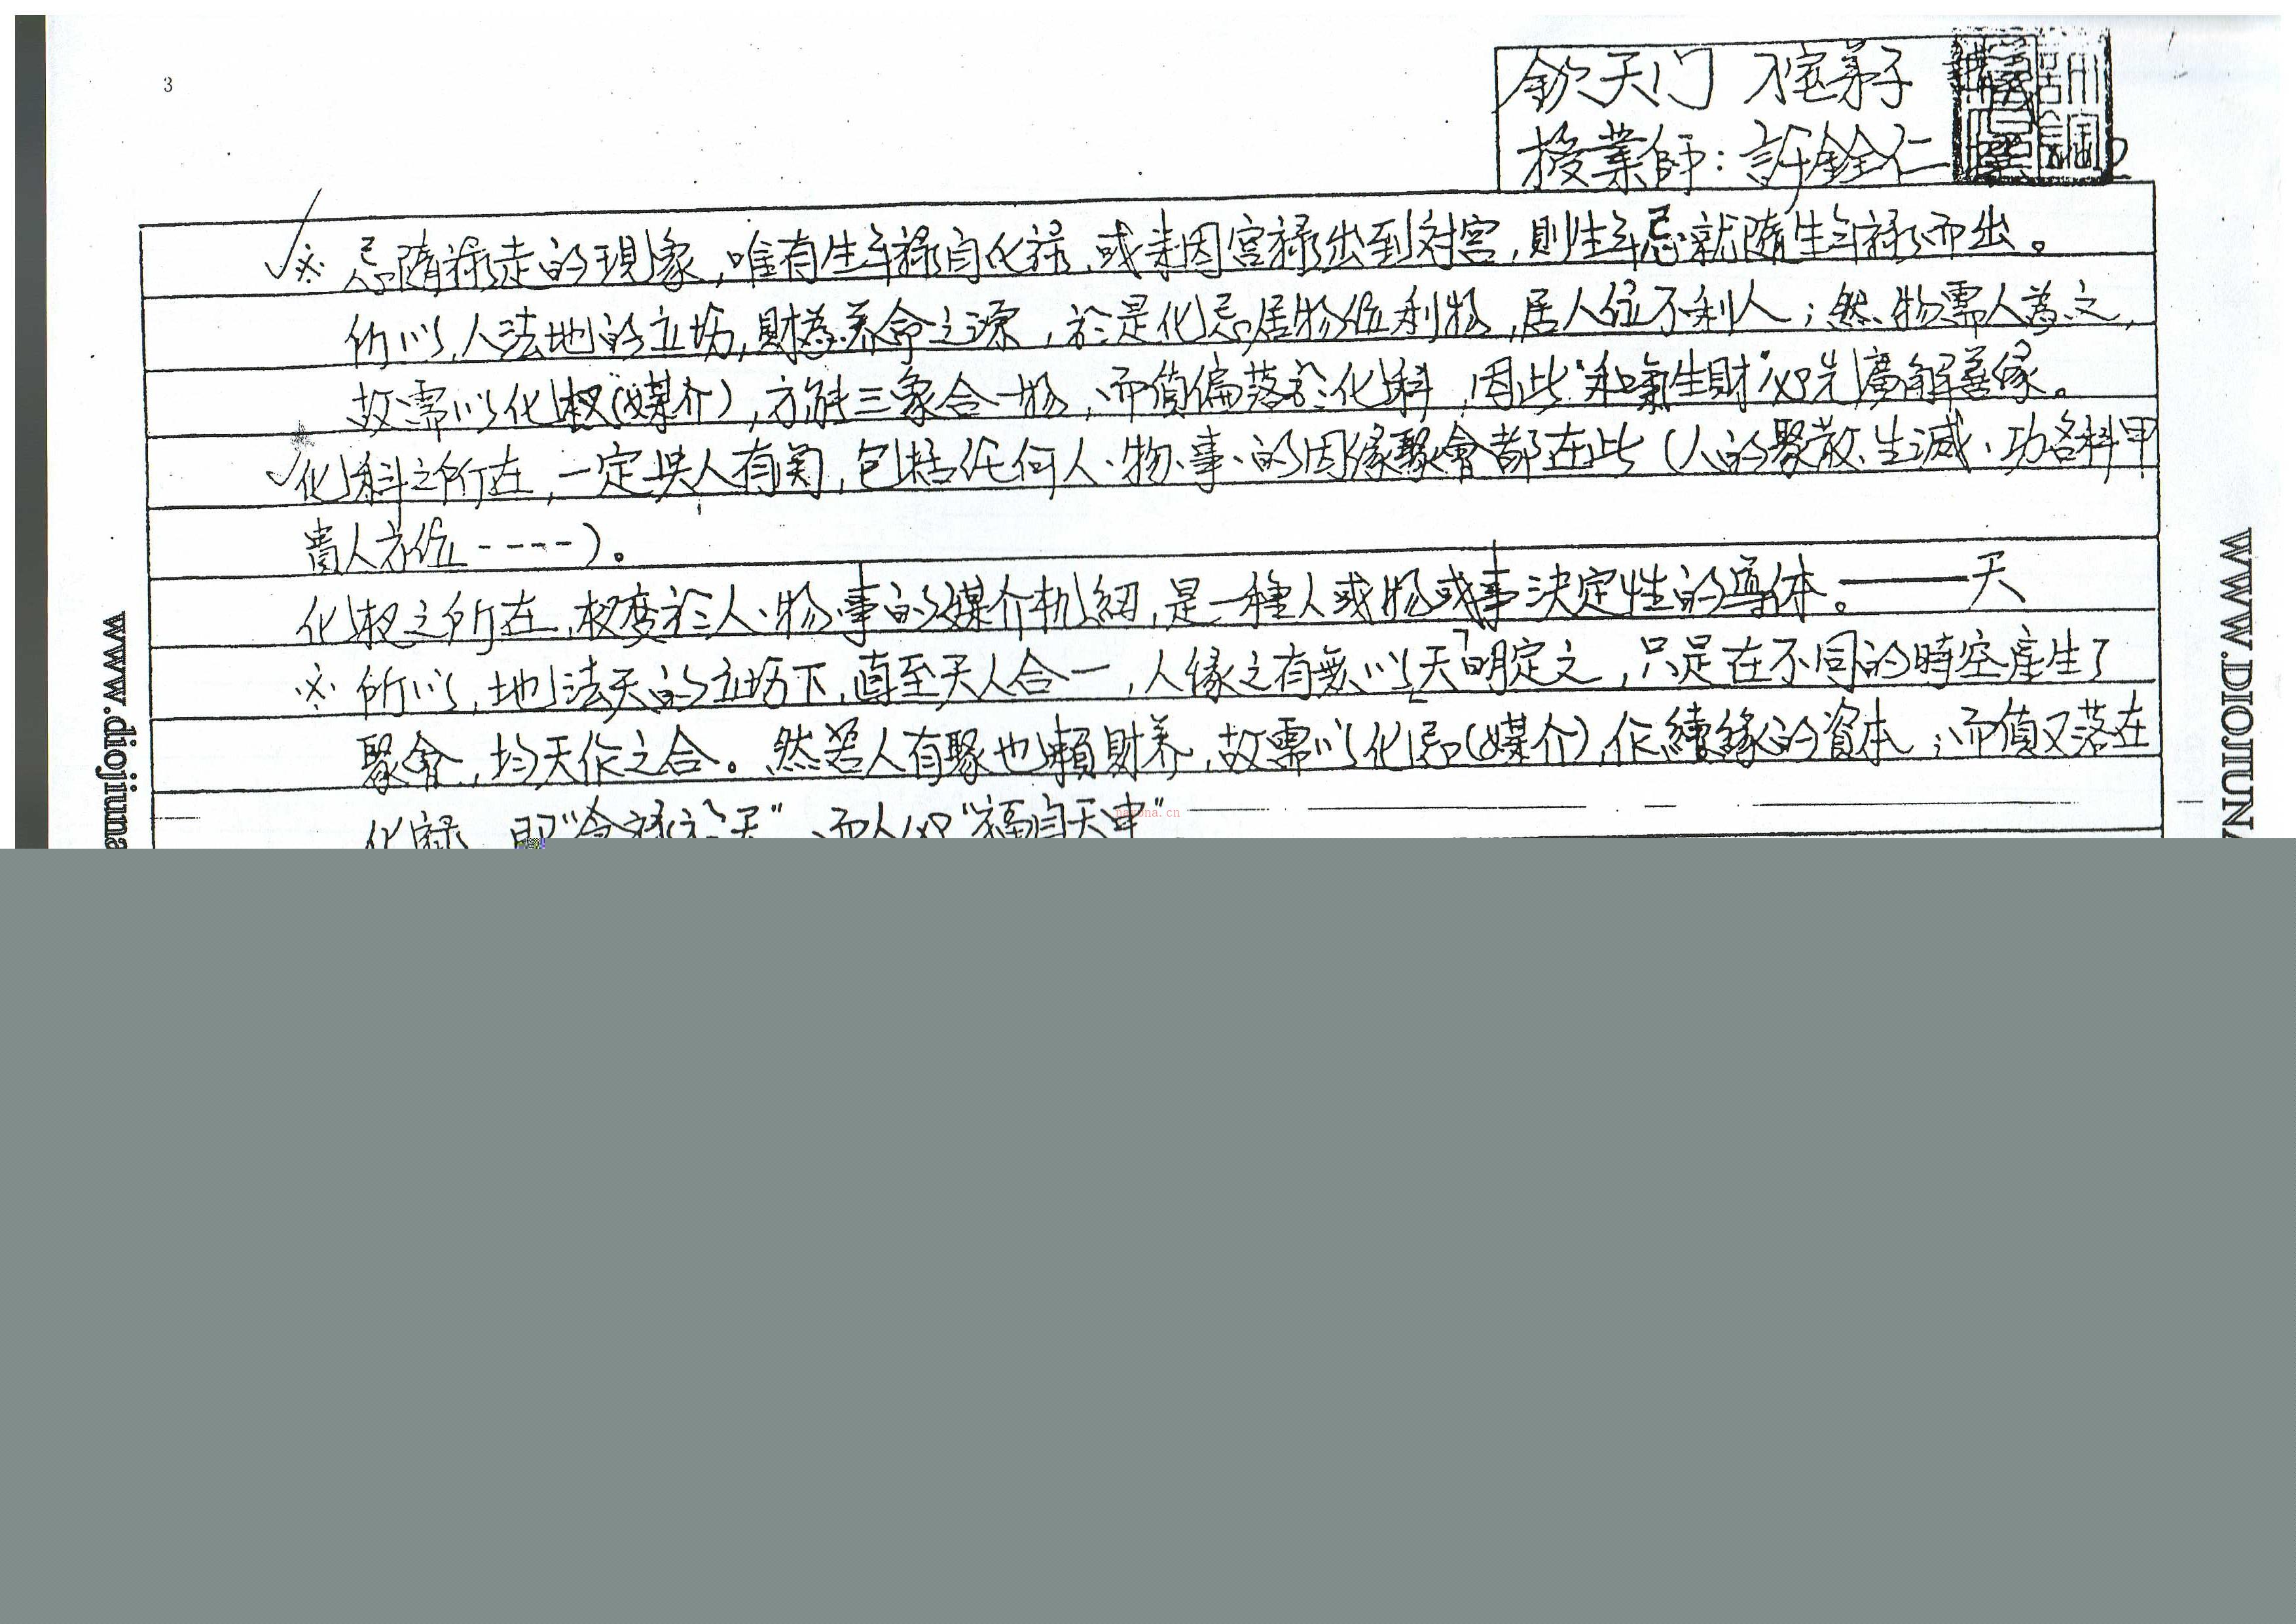 3
欽天门
授業師：許銓仁
※ 忌隨祿走的現象，唯有生年祿自化祿，或来因宮祿出到对宮，則生年忌就隨生年祿而出。
所以，人法地的立场，財為养命之源，於是化忌居物位利物，居人位不利人；然物需人為之，
故需以化权(媒介)，方能三象合一物，而值偏落於化科，因此"和氣生財"必先廣解善缘。
化科之所在，一定與人有関，包括任何人、物、事、的因缘聚會都在此（人的聚散、生滅、功名科甲
貴人方位----）。
化权之所在，权变於人、物、事的媒介机紐，是一種人或物或事決定性的導体。——天
※ 所以，地法天的立场下，直至天人合一，人缘之有無以天明定之，只是在不同的時空産生了
聚會，均天作之合。然若人有聚也賴財养，故需以化忌(媒介)作續緣的資本；而值又落在
化祿
www.diojiuna
WWW.DIOJIUNA
nayona.cn